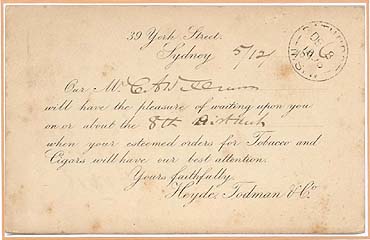 39 York Street.
Sydney 5/12
Our Mr C. A.
will have the pleasure of waiting upon you
on or about the 8th
when your esteemed orders for Tobacco and
Cigars will have our best attention.
Yours faithfully,
Heyde, Todman & Co
BATHURST
DE